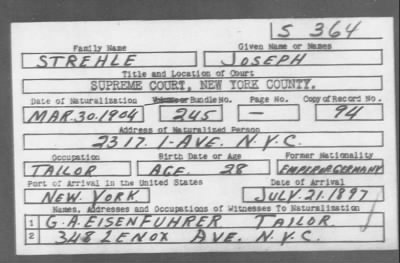 S 364
Family Name Given Name or Names
STREHLE JOSEPH
Title and Location of Court
SUPREME COURT, NEW YORK COUNTY.
Date of Naturalization Volume or Bundle No. Page No. Copy of Record No.
MAR. 30. 1904 245 — 94
Address of Naturalized Person
2317. 1-AVE. N.Y.C.
Occupation Birth Date or Age Former Nationality
TAILOR AGE. 28 EMPEROR GERMANY
Port of Arrival in the United States Date of Arrival
NEW YORK JULY. 21. 1897
Names, Addresses and Occupations of Witnesses To Naturalization
1 G. A. EISENFUHRER TAILOR.
2 348 LENOX AVE. N.Y.C.